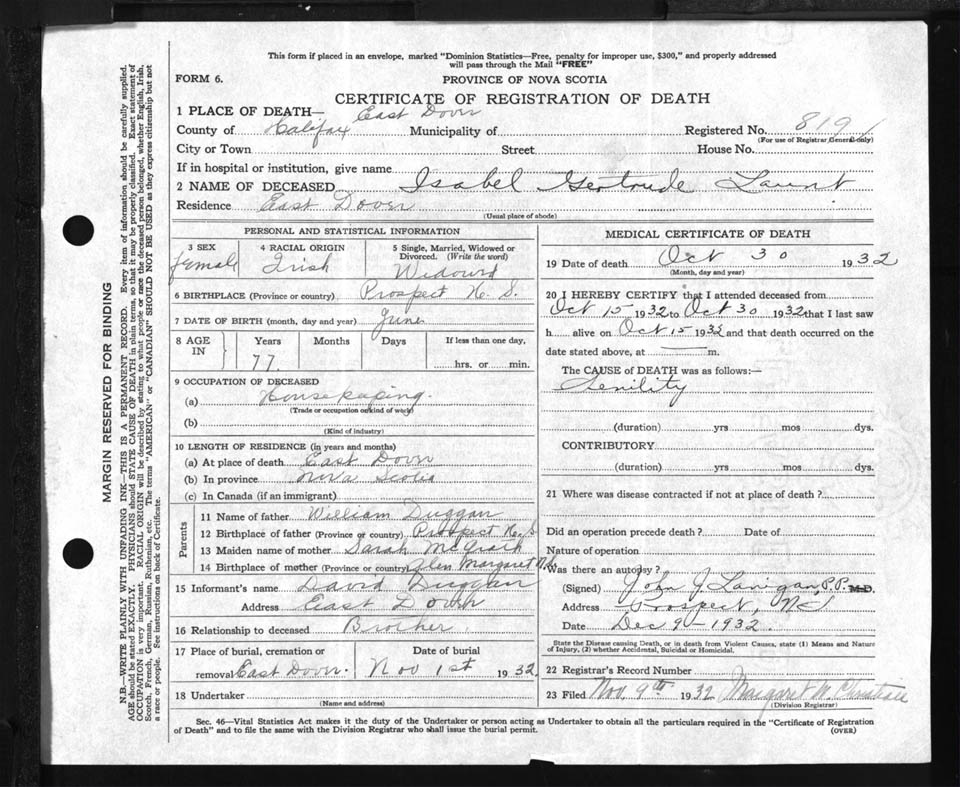 This form if placed in an envelope, marked "Dominion Statistics—Free, penalty for improper use, $300," and properly addressed
will pass through the Mail "FREE"
FORM 6.
PROVINCE OF NOVA SCOTIA
CERTIFICATE OF REGISTRATION OF DEATH
1 PLACE OF DEATH— East Dover
County of Halifax Municipality of Registered No. 8191
(For use of Registrar General only)
City or Town Street House No.
If in hospital or institution, give name
2 NAME OF DECEASED Isabel Gertrude
Residence East Dover
(Usual place of abode)
PERSONAL AND STATISTICAL INFORMATION
3 SEX 4 RACIAL ORIGIN 5 Single, Married, Widowed or
Divorced. (Write the word)
female Irish Widowd
6 BIRTHPLACE (Province or country) Prospect N. S.
7 DATE OF BIRTH (month, day and year) June
8 AGE IN Years Months Days If less than one day,
77 hrs. or min.
9 OCCUPATION OF DECEASED
(a) Housekeeping
(Trade or occupation or kind of work)
(b)
(Kind of industry)
10 LENGTH OF RESIDENCE (in years and months)
(a) At place of death East Dover
(b) In province Nova Scotia
(c) In Canada (if an immigrant)
Parents
11 Name of father William Duggan
12 Birthplace of father (Province or country) Prospect N. S
13 Maiden name of mother Sarah McGrath
14 Birthplace of mother (Province or country) Glen Margaret N.S.
15 Informant's name David Duggan
Address East Dover
16 Relationship to deceased Brother
17 Place of burial, cremation or Date of burial
removal East Dover. Nov 1st 1932
18 Undertaker
(Name and address)
MEDICAL CERTIFICATE OF DEATH
19 Date of death Oct 30 1932
(Month, day and year)
20 I HEREBY CERTIFY that I attended deceased from
Oct 15 1932 to Oct 30 1932 that I last saw
h alive on Oct 15 1932 and that death occurred on the
date stated above, at — m.
The CAUSE of DEATH was as follows:—
Senility
(duration) yrs mos dys.
CONTRIBUTORY
(duration) yrs mos dys.
21 Where was disease contracted if not at place of death?
Did an operation precede death? Date of
Nature of operation
Was there an autopsy?
(Signed) John J Lanigan, P.P. M.D.
Address Prospect, NS
Date Dec 9 - 1932
State the Disease causing Death, or in death from Violent Causes, state (1) Means and Nature
of Injury, (2) whether Accidental, Suicidal or Homicidal.
22 Registrar's Record Number
23 Filed Nov 9th 1932 Margaret W.
(Division Registrar)
Sec. 46—Vital Statistics Act makes it the duty of the Undertaker or person acting as Undertaker to obtain all the particulars required in the "Certificate of Registration
of Death" and to file the same with the Division Registrar who shall issue the burial permit.
(OVER)
MARGIN RESERVED FOR BINDING
N.B.—WRITE PLAINLY WITH UNFADING INK—THIS IS A PERMANENT RECORD. Every item of information should be carefully supplied.
AGE should be stated EXACTLY. PHYSICIANS should STATE CAUSE OF DEATH in plain terms, so that it may be properly classified. Exact statement of
OCCUPATION is very important. RACIAL ORIGIN will be described by stating to what people or race the deceased person belonged, whether English, Irish,
Scotch, French, German, Russian, Ruthenian, etc. The terms "AMERICAN" or "CANADIAN" SHOULD NOT BE USED as they express citizenship but not
a race or people. See instructions on back of Certificate.